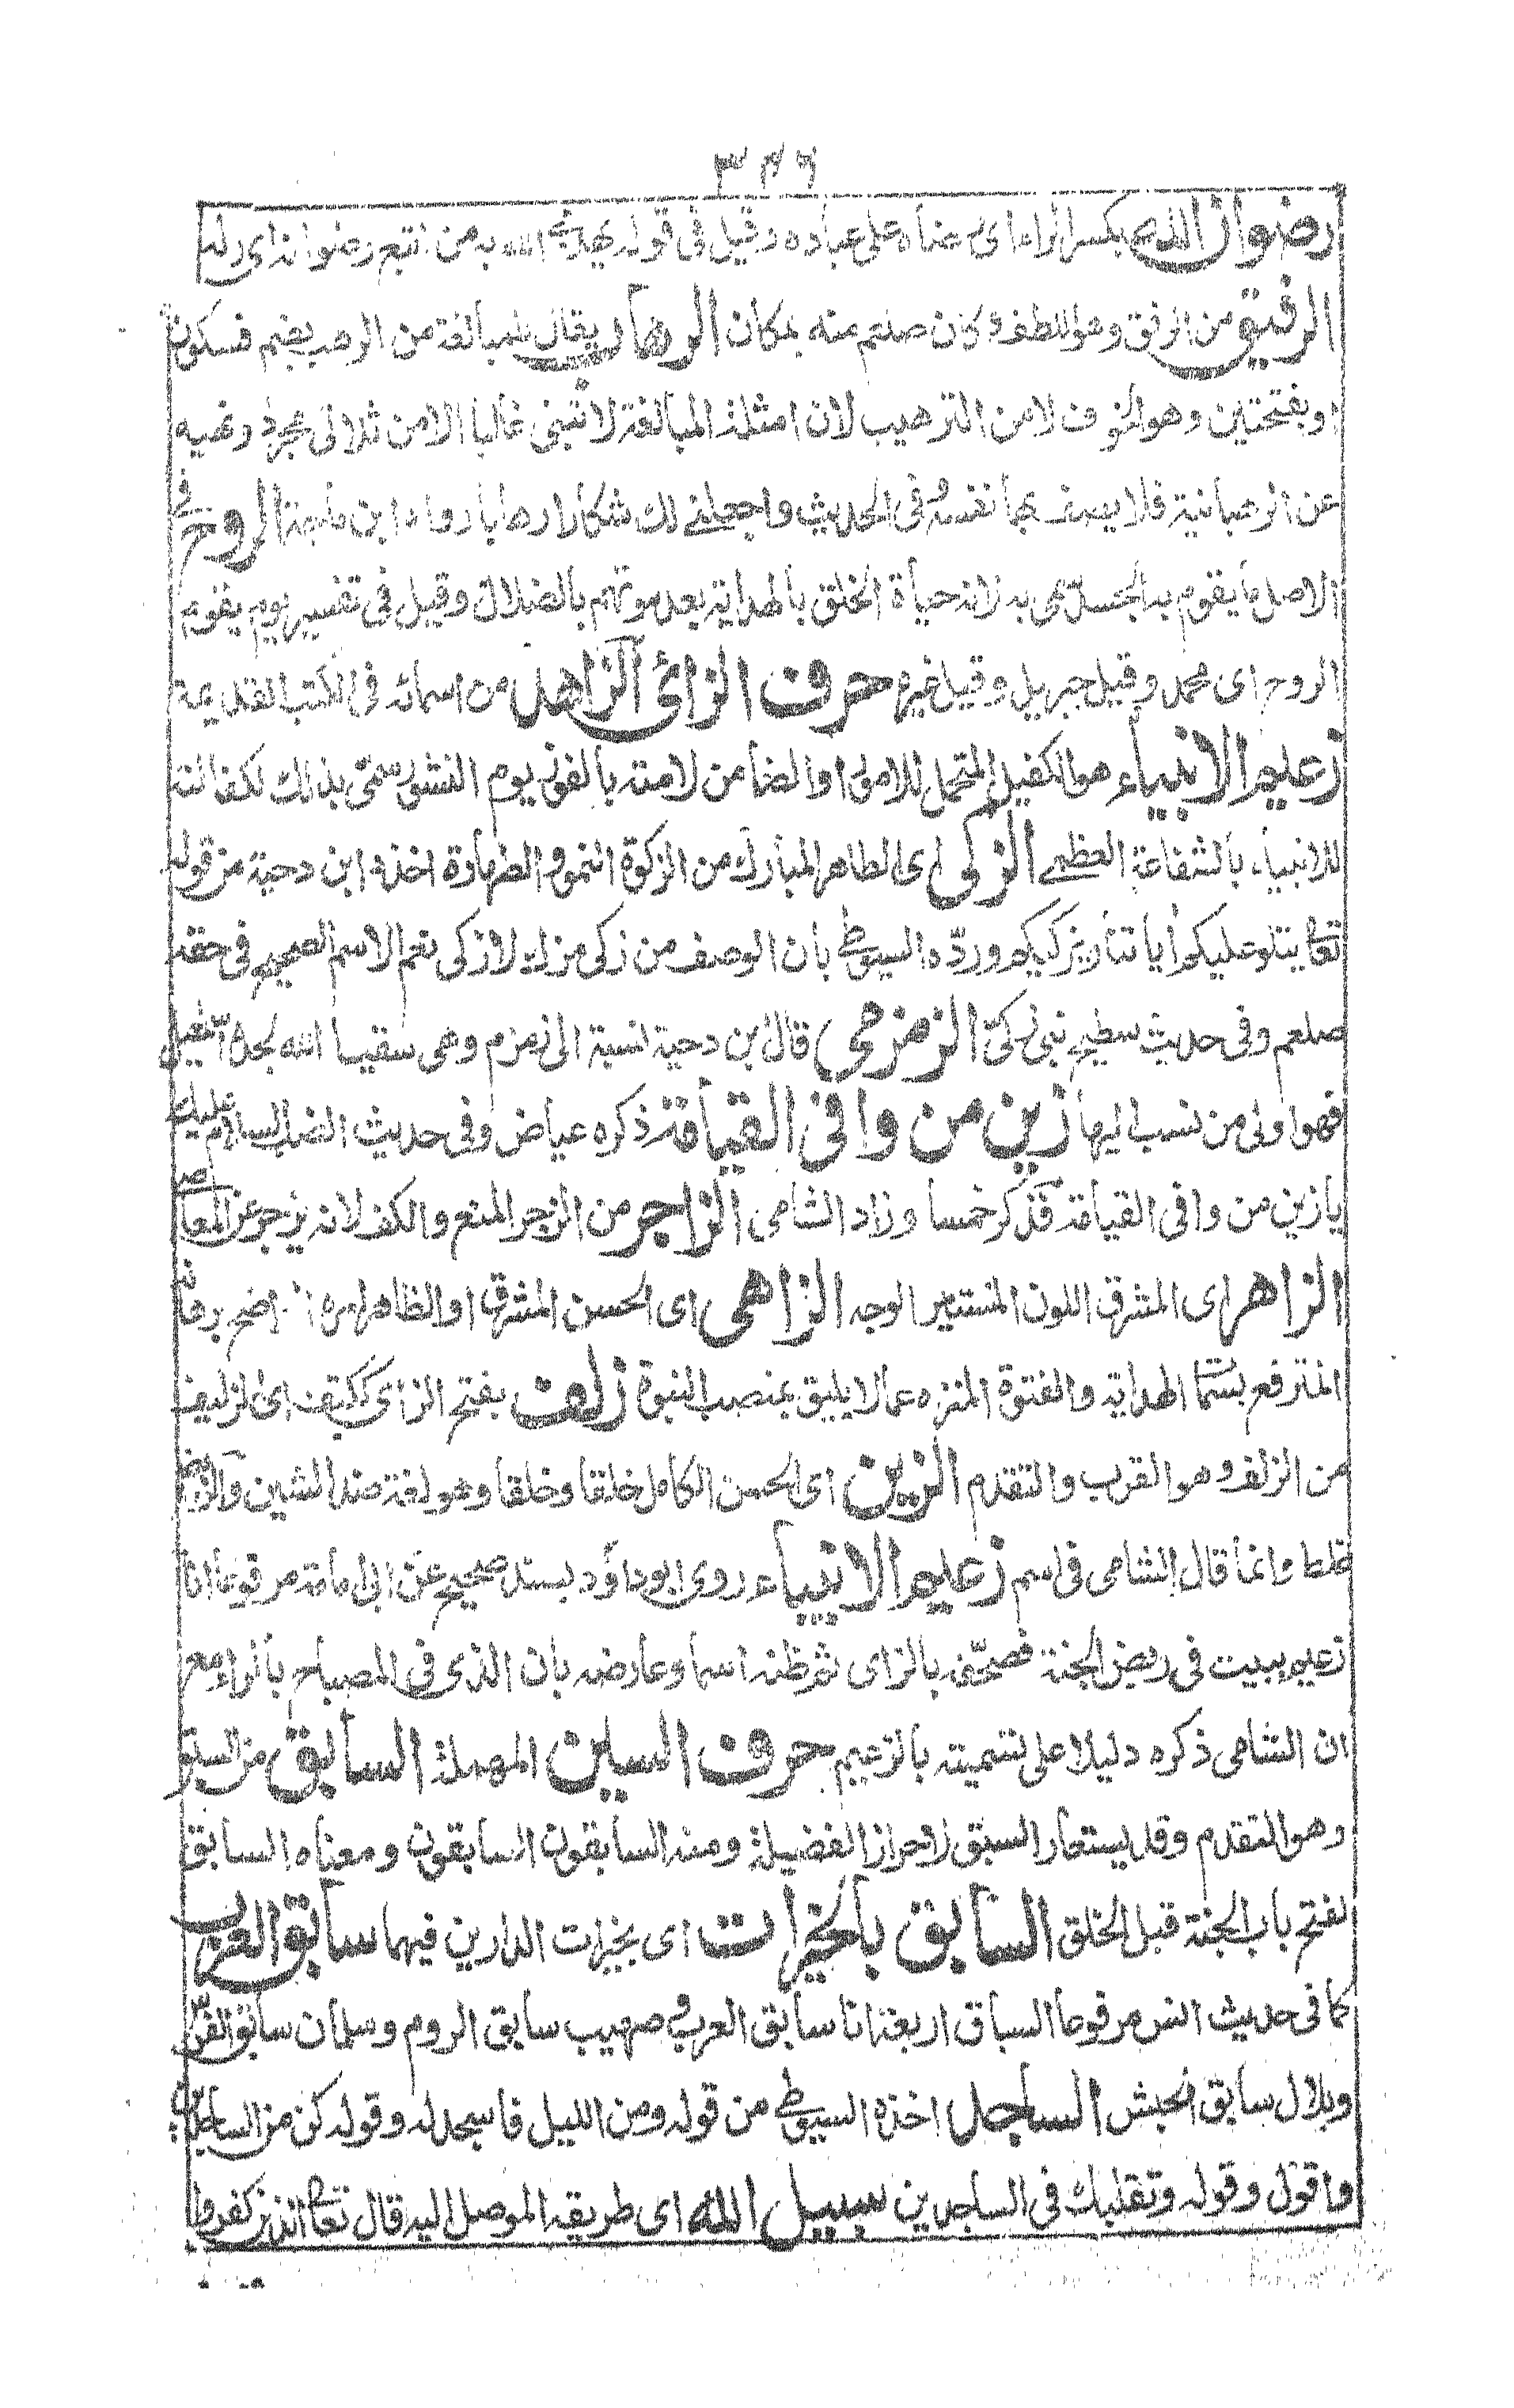 ٣٤٦
رضوان الله بكسر الراء اى رضاه على عباده وقيل فى قوله يهدى به الله من اتبع رضوانه اى رسله
الرفيق من الرفق وهو اللطف وكان صلعم منه بمكان الرهاب يقال للمبالغة من الرهب بضم فسكون
وبفتحتين وهو الخوف لا من الترهيب لان امثلة المبالغة لا تبنى غالبا الا من ثلاثى مجرد ونهيه
عن الرهبانية فلا يصف بها نفسه وفى الحديث واجعلنى لك شكارا رهابا رواه ابن ماجة الروح فى
الاصل ما يقوم به الجسد سمى به لانه حياة الخلق بالهداية بعد موتهم بالضلال وقيل فى تفسير يوم يقوم
الروح اى محمد وقيل جبريل وقيل غيره حرف الزائى الزاهد من اسمائه فى الكتب القديمة
زعيم الانبياء هو الكفيل المتحمل للامور او الضامن لامته بالفوز يوم النشور سمى بذلك لكفالته
للانبياء بالشفاعة العظمى الزكى اى الطاهر المبارك من الزكوة النمو والطهارة اخذه ابن دحية من قوله
تعا يتلو عليكم اياتنا ويزكيكم وردّه السيوطى بان الوصف من زكى مزك لا زكى نعم الاسم الصحيح فى حقه
صلعم وفى حديث سطيح نبى زكى الزمزمى قال ابن دحية نسبة الى زمزم وهى سقيا الله لجده اسمعيل
فهو اولى من نسب اليها زين من وافى القيامة ذكره عياض وفى حديث الضب السلام عليك
يا زين من وافى القيامة فذكر خمسا وزاد الشامى الزاجر من الزجر المنع والكف لانه يزجر عن المعاصى
الزاهر اى المشرق اللون المستنير الوجه الزاهى اى الحسن المشرق او الظاهر امره الواضح برهانه
المترفع بسما الهداية والفتوة المنزه عما لا يليق بمنصب النبوة زلف بفتح الزاى ككتف اى الزليف
من الزلف وهو القرب والتقدم الزين اى الحسن الكامل خلقا وخلقا وهو لغة ضد الشين والزين
غلط وانما قال الشامى فى اسم زعيم الانبياء روى ابوداؤد بسند صحيح عن ابى امامة مرفوعا انا
زعيم ببيت فى ربض الجنة فصحّفه بالزاى ثم ظنه اسما وعارضه بان الذى فى المصباح بالراء مع
ان الشامى ذكره دليلا على تسميته بالزعيم حرف السين المهملة السابق من السبق
وهو التقدم وقد يستعار السبق لاحراز الفضيلة ومنه السابقون السابقون ومعناه السابق
لفتح باب الجنة قبل الخلق السابق بالخيرات اى بخيرات الدارين فيهما سابق العرب
كما فى حديث انس مرفوعا السباق اربعة انا سابق العرب وصهيب سابق الروم وسلمان سابق الفرس
وبلال سابق الحبش الساجد اخذه السيوطى من قوله ومن الليل فاسجد له وقوله كن من الساجدين
واقول وقوله وتقلبك فى الساجدين سبيل الله اى طريقه الموصل اليه قال تعا الذين كفروا